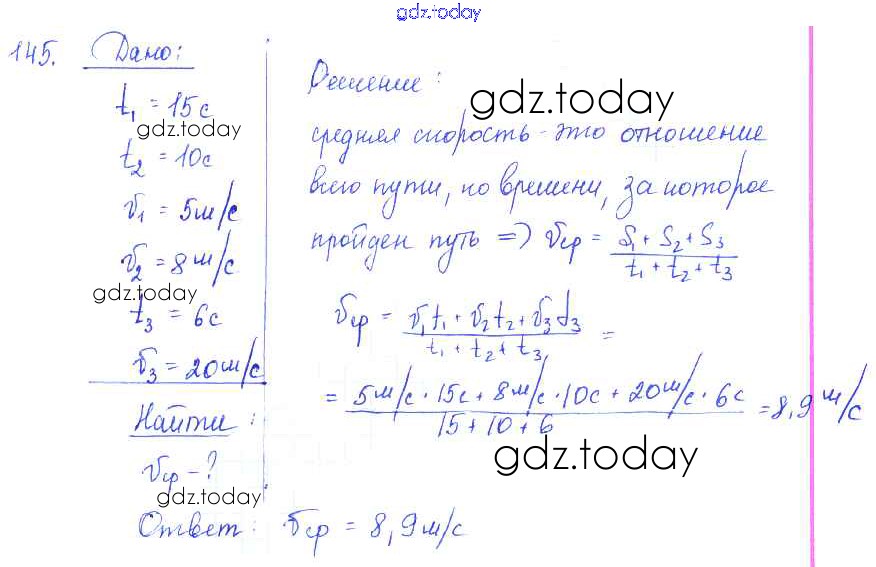 gdz.today
145. Дано:
t₁ = 15с
gdz.today
t₂ = 10с
v₁ = 5м/с
v₂ = 8м/с
gdz.today
t₃ = 6с
v₃ = 20м/с
Найти:
vср - ?
gdz.today
Решение:
gdz.today
средняя скорость - это отношение
всего пути, ко времени, за которое
пройден путь => vср = S₁ + S₂ + S₃ / t₁ + t₂ + t₃
vср = v₁t₁ + v₂t₂ + v₃t₃ / t₁ + t₂ + t₃ =
= 5м/с · 15с + 8м/с · 10с + 20м/с · 6с / 15 + 10 + 6 = 8,9 м/с
gdz.today
Ответ: vср = 8,9м/с